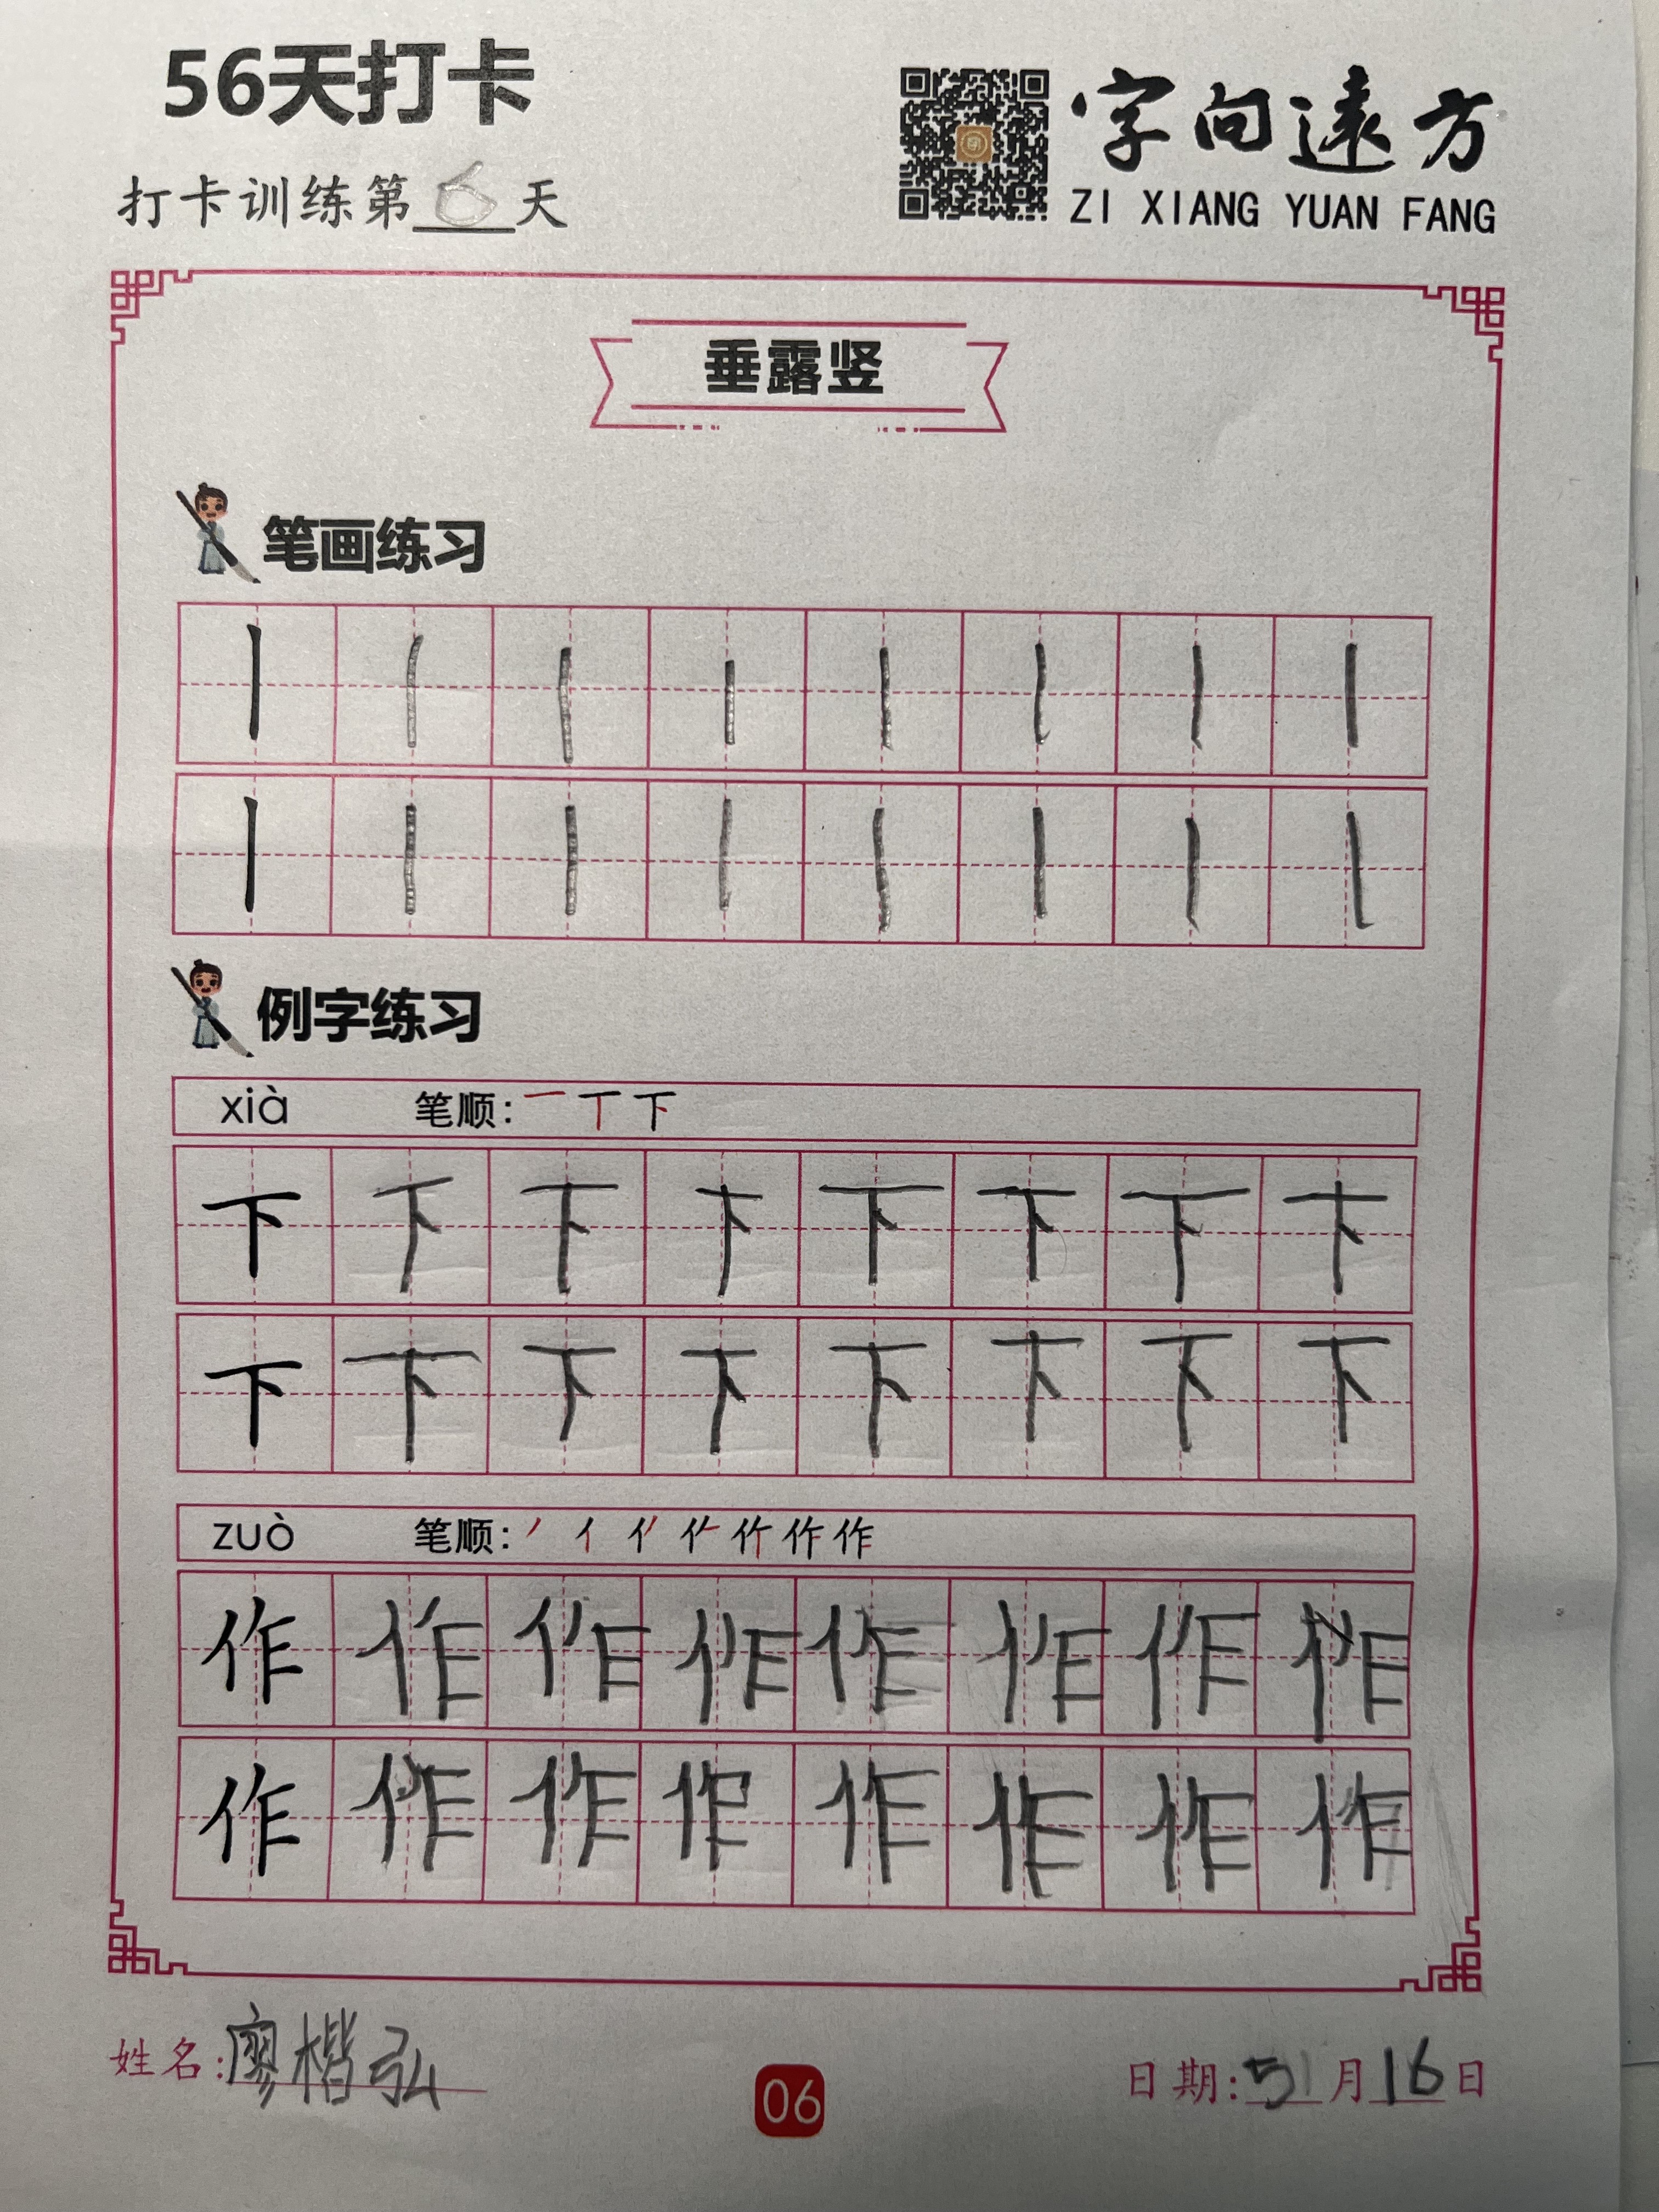 56天打卡
字向遠方
打卡训练第6天
ZI XIANG YUAN FANG
垂露竖
笔画练习
丨 丨 丨 丨 丨 丨 丨 丨
丨 丨 丨 丨 丨 丨 丨 丨
例字练习
xià 笔顺: 一 丅 下
下 下 下 下 下 下 下 下
下 下 下 下 下 下 下 下
zuò 笔顺:
作 作 作 作 作 作 作 作
作 作 作 作 作 作 作 作
姓名:廖楷弘
06
日期:5月16日